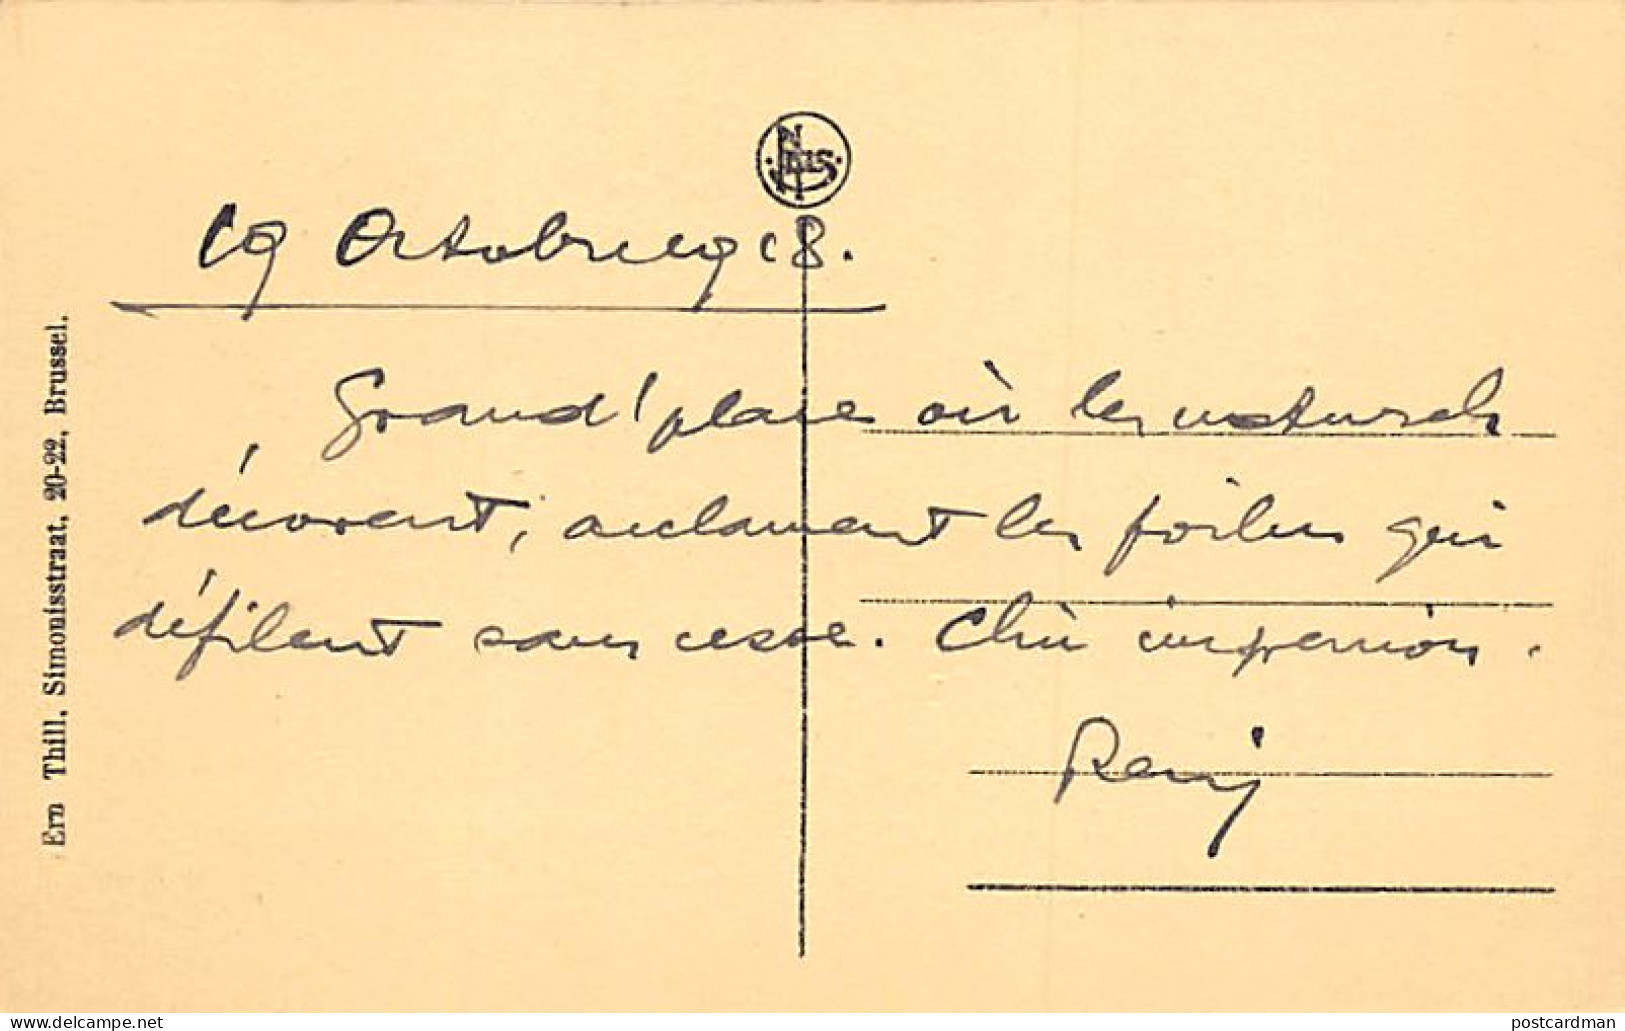 NELS
19 Octobre 1918.
Grand'place où les naturels
décorent, acclament les poilus qui
défilent sans cesse. Chic impression.
Ern Thill, Simonisstraat, 20-22, Brussel.
postcardman